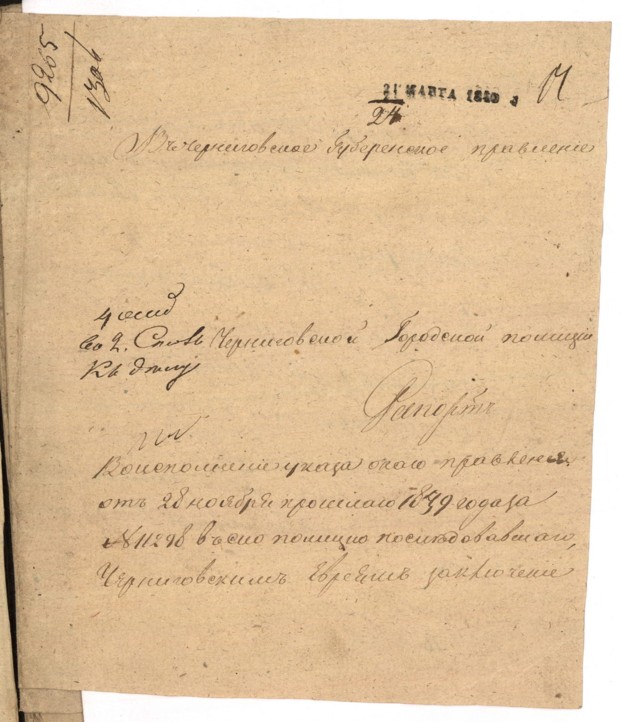 9265
21 МАРТА 1840
24
Въ черниговское Губеренское правление
4 
Во 2. Столъ Черниговской Городской полиции
Къ дѣлу
Рапортъ
Воисполнение указа онаго правления
отъ 28 ноября прошлаго 1839 года за
№ 11298 въ сию полицию последовавшаго,
Черниговскимъ Евреямъ заключение